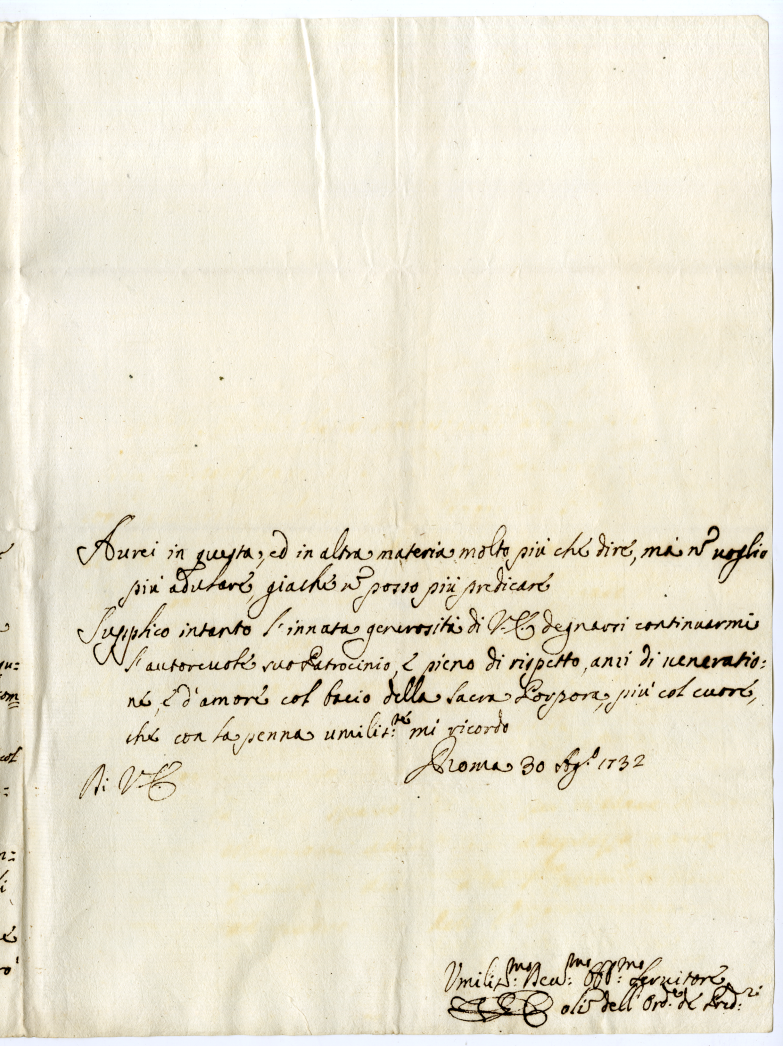 Aurei in questa, ed in altra materia molto più che dire, mà nõ uoglio
più adulare, giache nõ posso più predicare
Supplico intanto l'innata generosità di V.E. degnarsi continuarmi
l'autoreuole suo Patrocinio, è pieno di rispetto, anzi di ueneratio:
ne, è d'amore col bacio della Sacra Porpora, più col cuore,
che con la penna umilis:te mi ricordo
Roma 30 Ag:o 1732
Di V.E.
Umilis:mo Deu:mo Off:mo Seruitore
dell'Ord:e de Pred:ri